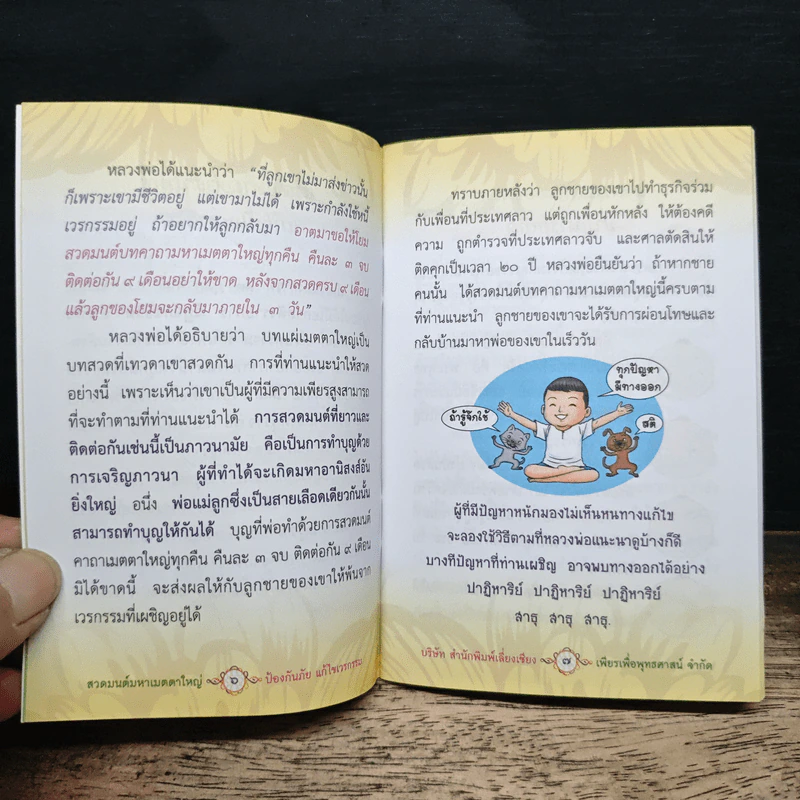 หลวงพ่อได้แนะนำว่า "ที่ลูกเขาไม่มาส่งข่าวนั้น
ก็เพราะเขามีชีวิตอยู่ แต่เขามาไม่ได้ เพราะกำลังใช้หนี้
เวรกรรมอยู่ ถ้าอยากให้ลูกกลับมา อาตมาขอให้โยม
สวดมนต์บทคาถามหาเมตตาใหญ่ทุกคืน คืนละ ๓ จบ
ติดต่อกัน ๙ เดือนอย่าให้ขาด หลังจากสวดครบ ๙ เดือน
แล้วลูกของโยมจะกลับมาภายใน ๓ วัน"
หลวงพ่อได้อธิบายว่า บทแผ่เมตตาใหญ่เป็น
บทสวดที่เทวดาเขาสวดกัน การที่ท่านแนะนำให้สวด
อย่างนี้ เพราะเห็นว่าเขาเป็นผู้ที่มีความเพียรสูงสามารถ
ที่จะทำตามที่ท่านแนะนำได้ การสวดมนต์ที่ยาวและ
ติดต่อกันเช่นนี้เป็นภาวนามัย คือเป็นการทำบุญด้วย
การเจริญภาวนา ผู้ที่ทำได้จะเกิดมหาอานิสงส์อัน
ยิ่งใหญ่ อนึ่ง พ่อแม่ลูกซึ่งเป็นสายเลือดเดียวกันนั้น
สามารถทำบุญให้กันได้ บุญที่พ่อทำด้วยการสวดมนต์
คาถาเมตตาใหญ่ทุกคืน คืนละ ๓ จบ ติดต่อกัน ๙ เดือน
มิได้ขาดนี้ จะส่งผลให้กับลูกชายของเขาให้พ้นจาก
เวรกรรมที่เผชิญอยู่ได้
สวดมนต์มหาเมตตาใหญ่ ๖ ป้องกันภัย แก้ไขเวรกรรม
ทราบภายหลังว่า ลูกชายของเขาไปทำธุรกิจร่วม
กับเพื่อนที่ประเทศลาว แต่ถูกเพื่อนหักหลัง ให้ต้องคดี
ความ ถูกตำรวจที่ประเทศลาวจับ และศาลตัดสินให้
ติดคุกเป็นเวลา ๒๐ ปี หลวงพ่อยืนยันว่า ถ้าหากชาย
คนนั้น ได้สวดมนต์บทคาถามหาเมตตาใหญ่นี้ครบตาม
ที่ท่านแนะนำ ลูกชายของเขาจะได้รับการผ่อนโทษและ
กลับบ้านมาหาพ่อของเขาในเร็ววัน
ทุกปัญหา
มีทางออก
ถ้ารู้จักใช้
สติ
ผู้ที่มีปัญหาหนักมองไม่เห็นหนทางแก้ไข
จะลองใช้วิธีตามที่หลวงพ่อแนะนำดูบ้างก็ดี
บางทีปัญหาที่ท่านเผชิญ อาจพบทางออกได้อย่าง
ปาฏิหาริย์ ปาฏิหาริย์ ปาฏิหาริย์
สาธุ สาธุ สาธุ.
บริษัท สำนักพิมพ์เลี่ยงเชียง ๗ เพียรเพื่อพุทธศาสน์ จำกัด